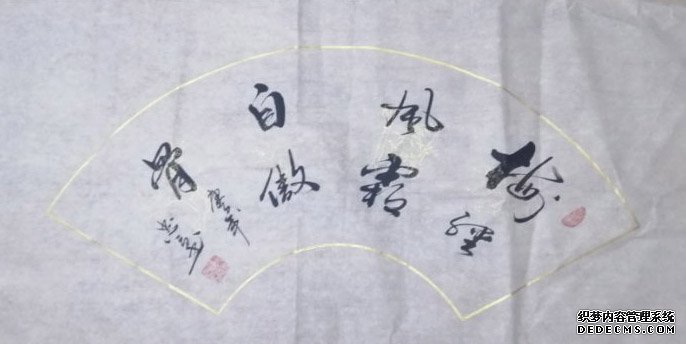 梅經
風霜
自傲
骨
庚子年
织梦内容管理系统
DEDECMS.COM